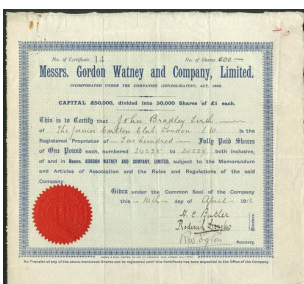 No. of Certificate 14 No. of Shares 200
Messrs. Gordon Watney and Company, Limited.
INCORPORATED UNDER THE COMPANIES (CONSOLIDATION) ACT, 1908.
CAPITAL £50,000, divided into 50,000 Shares of £1 each.
This is to Certify that John Bradley Firth
of The Junior Carlton Club, London S.W. is the
Registered Proprietor of Two hundred Fully Paid Shares
of One Pound each, numbered to both inclusive,
of and in Messrs. GORDON WATNEY AND COMPANY, LIMITED, subject to the Memorandum
and Articles of Association and the Rules and Regulations of the said
Company.
Given under the Common Seal of the Company
this day of April 19
Secretary.
No Transfer of any of the above-mentioned Shares can be registered until this Certificate has been deposited at the Office of the Company.